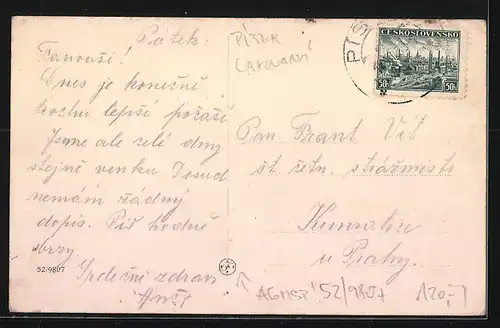 Pátek:
Fanouši!
Dnes je konečně
trochu lepší počasí
Jsme ale celé dny
stejně venku. Dosud
nemám žádný
dopis. Piš hodně
brzy
Společní zdraví
52/9807
PÍSEK
PIS
ČESKOSLOVENSKO
50h 50h
Pan Frant Vít
št. četn. strážmistr
Kunratice
u Prahy.
52/9807
120,-